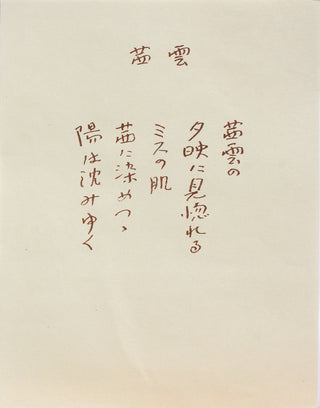 茜雲
茜雲の
夕映に見惚れる
ミスの肌
茜に染めつゝ
陽は沈みゆく